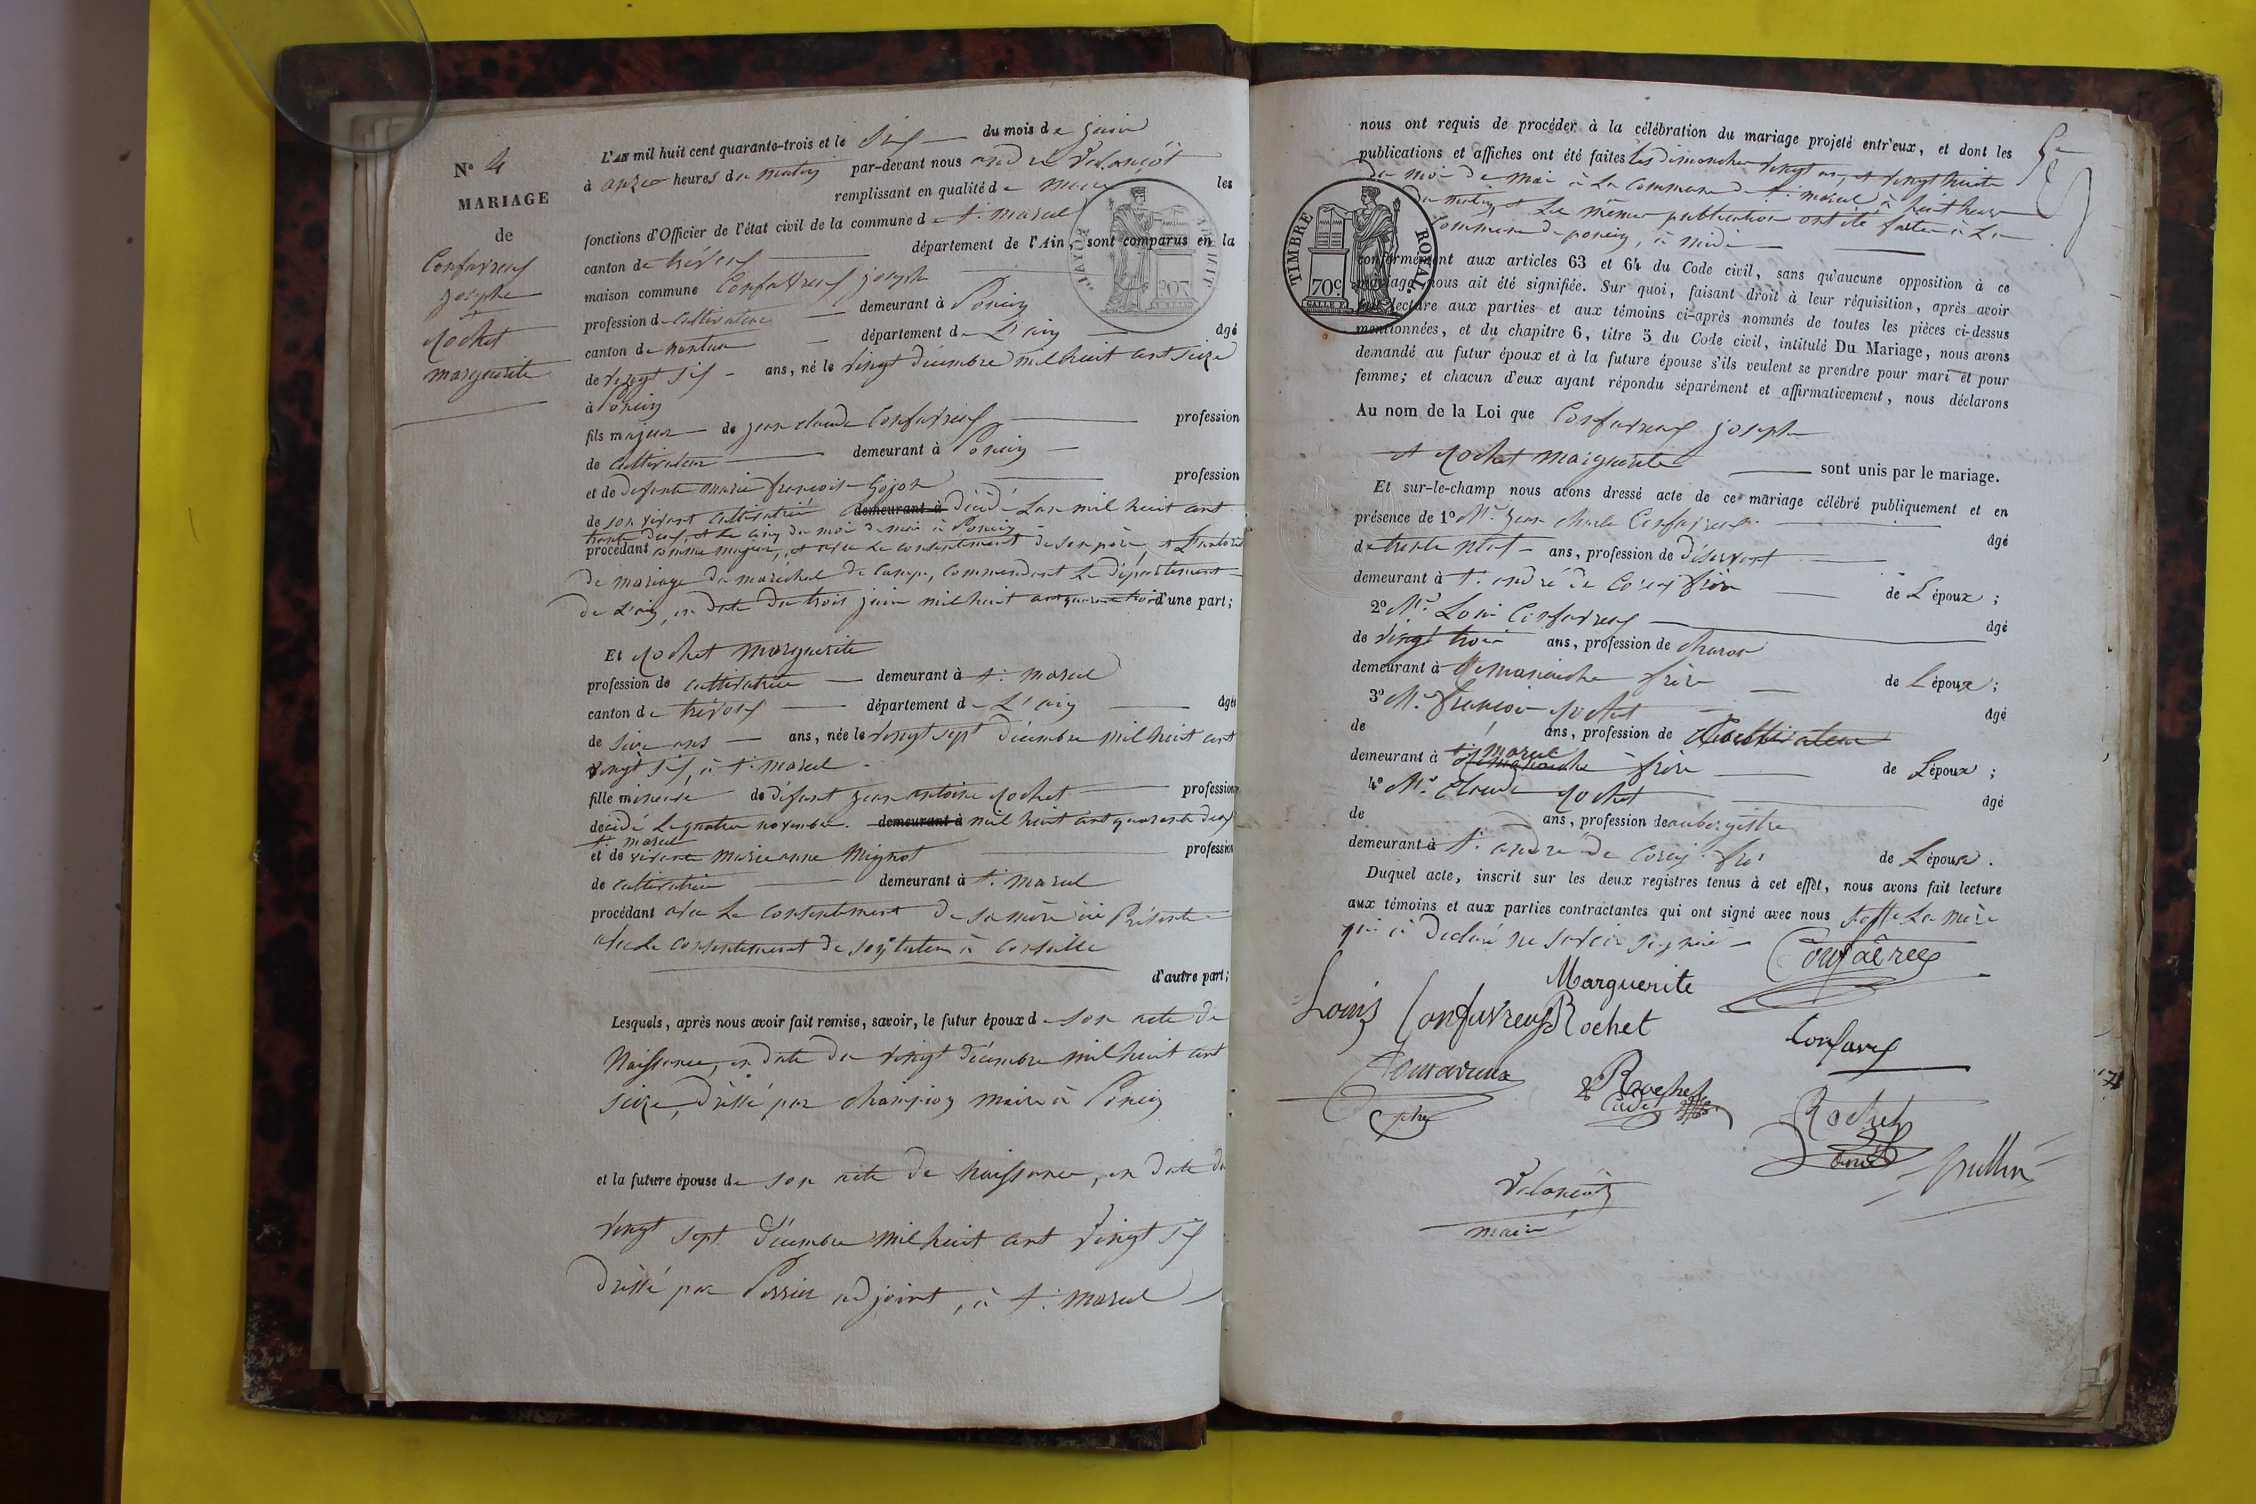 N° 4
MARIAGE
de
Confavreux
joseph
et
Rochet
marguerite
L'AN mil huit cent quarante-trois et le Six du mois de juin
à onze heures du matin par-devant nous andré Valançot
remplissant en qualité de maire les
fonctions d'Officier de l'état civil de la commune de St. marcel
canton de trévoux département de l'Ain, sont comparus en la
maison commune Confavreux joseph
profession de Cultivateur demeurant à Poncin
canton de nantua département de L'ain âgé
de vingt six ans, né le vingt décembre mil huit cent seize
à Poncin
fils majeur de jean claude Confavreux profession
de cultivateur demeurant à Poncin
et de defunte marie françoise Gojon profession
de son vivant cultivatrice demeurant à décédé L'an mil huit cent
trente deux, et le cinq du moi de mai à Poncin
procédant comme majeur, et avec le consentement de son père, et L'autorisé
de mariage du maréchal de Camp, Commendant Le département
de L'ain, en date du trois juin mil huit cent quarante trois d'une part;
Et Rochet marguerite
profession de cultivatrice demeurant à St. marcel
canton de trévoux département de L'ain âgée
de seize ans ans, née le vingt sept décembre mil huit cent
vingt six, à St. marcel
fille mineure de défunt jean antoine Rochet profession
décédé Le quatre novembre demeurant à mil huit cent quarante deux
St. marcel
et de vivante marieanne Mignot profession
de cultivatrice demeurant à St. marcel
procédant avec Le Consentement de sa mère ici Présente
avec Le consentement de son tuteur à conseille
d'autre part;
Lesquels, après nous avoir fait remise, savoir, le futur époux de son acte de
Naissance, en date du vingt décembre mil huit cent
seize, dressé par Champion maire à Poncin
et la future épouse de son acte de naissance, en date du
vingt sept décembre mil huit cent vingt six
dressé par Perrier adjoint, à St. marcel
nous ont requis de procéder à la célébration du mariage projeté entr'eux, et dont les
publications et affiches ont été faites les dimanches vingt un, et vingt huit
du moi de mai à La Commune de St. marcel à huit heures
du matin, et Les mêmes publications ont été faites à La
Commune de poncin, à midi
conformément aux articles 63 et 64 du Code civil, sans qu'aucune opposition à ce
mariage nous ait été signifiée. Sur quoi, faisant droit à leur réquisition, après avoir
lecture aux parties et aux témoins ci-après nommés de toutes les pièces ci-dessus
mentionnées, et du chapitre 6, titre 5 du Code civil, intitulé Du Mariage, nous avons
demandé au futur époux et à la future épouse s'ils veulent se prendre pour mari et pour
femme; et chacun d'eux ayant répondu séparément et affirmativement, nous déclarons
Au nom de la Loi que Confavreux joseph
et Rochet marguerite sont unis par le mariage.
Et sur-le-champ nous avons dressé acte de ce mariage célébré publiquement et en
présence de 1° Mr. jean charle Confavreux âgé
de trente neuf ans, profession de désservant
demeurant à St. andré de Corcy frère de L'époux;
2° Mr. Loui Confavreux âgé
de vingt trois ans, profession de charon
demeurant à frère de L'époux;
3° Mr. françois Rochet âgé
de ans, profession de Cultivateur
demeurant à St. marcel frère de L'épouse;
4° Mr. Claude Rochet âgé
de ans, profession de aubergistre
demeurant à St. andré de Corcy frère de L'épouse.
Duquel acte, inscrit sur les deux registres tenus à cet effet, nous avons fait lecture
aux témoins et aux parties contractantes qui ont signé avec nous La mère
qui a déclaré ne savoir signer
Marguerite
Rochet
Louis Confavreux
Confavreux
Rochet
Rochet
Valançot
maire
TIMBRE ROYAL
70c